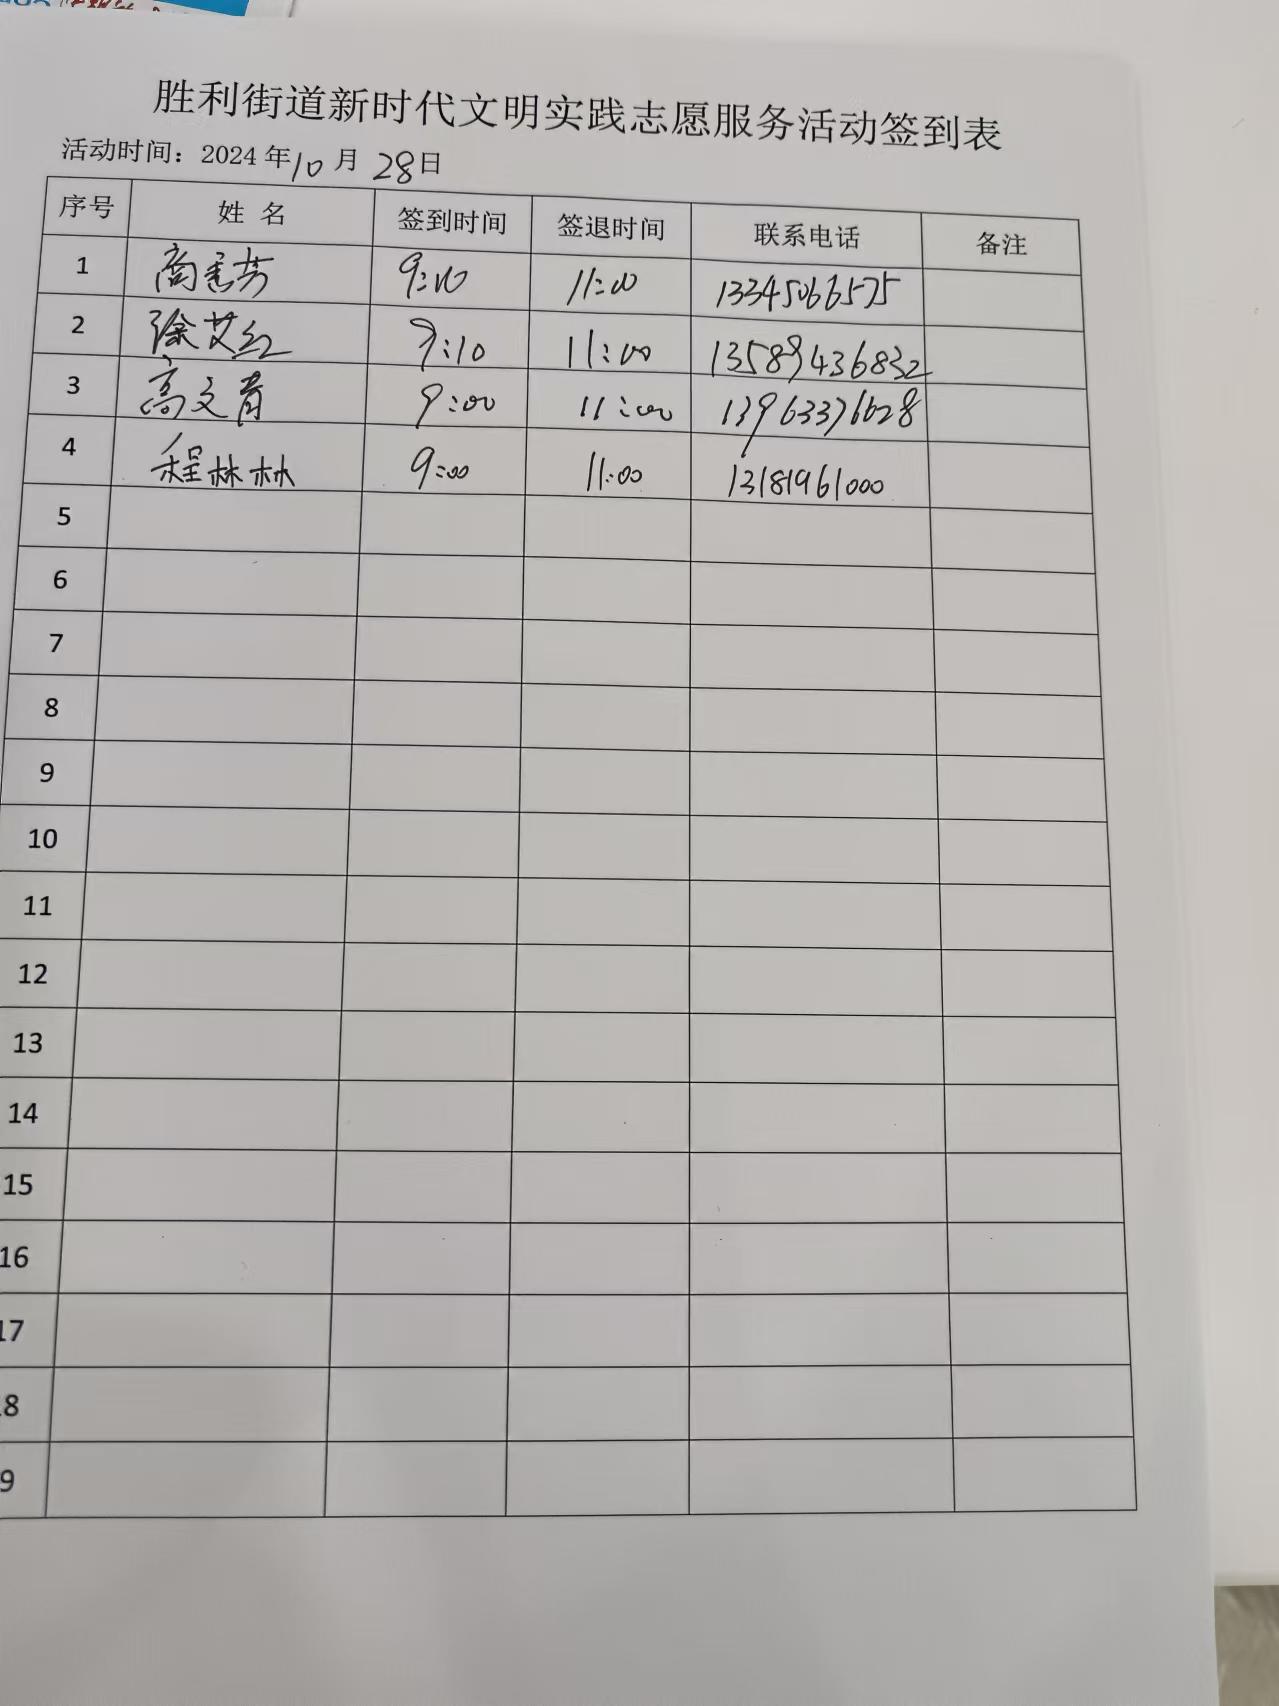 胜利街道新时代文明实践志愿服务活动签到表
活动时间：2024年10月28日
序号 姓名 签到时间 签退时间 联系电话 备注
1 商秀芳 9:00 11:00 13345066575
2 徐艾红 9:10 11:00 13589436832
3 高文青 9:00 11:00 13963376628
4 程林林 9:00 11:00 13181961000
5
6
7
8
9
10
11
12
13
14
15
16
17
8
9